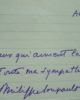 A
eux qui aiment l
toute ma sympath
Philippe Soupault